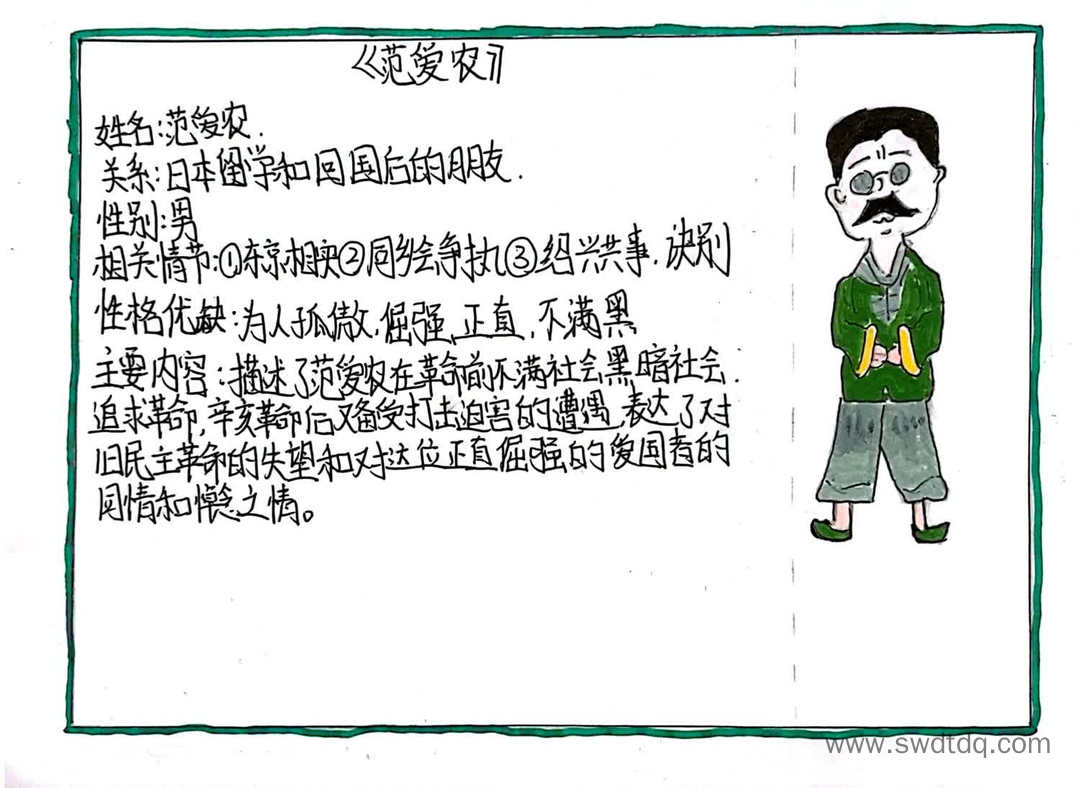 《范爱农》
姓名:范爱农.
关系:日本留学和回国后的朋友.
性别:男
相关情节:①东京相映②同乡会争执③绍兴共事.诀别
性格优缺:为人孤傲.倔强.正直.不满黑
主要内容:描述了范爱农在革命前不满社会黑暗社会.
追求革命,辛亥革命后又备受打击迫害的遭遇,表达了对
旧民主革命的失望和对达位正直倔强的爱国者的
同情和悼念之情。
www.swdtdq.com